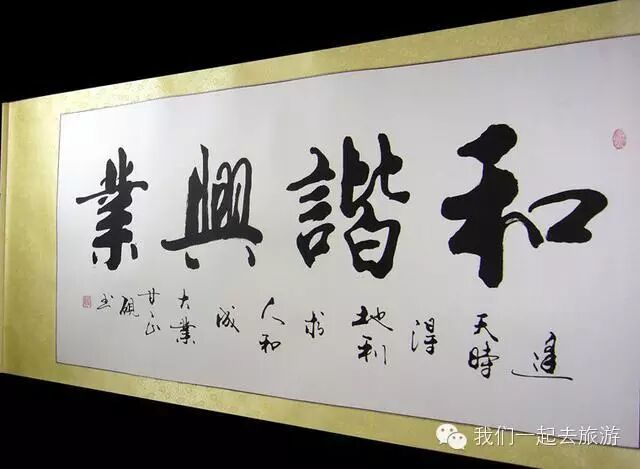 和諧興業
逢天時得地利求人和成大業
我们一起去旅游